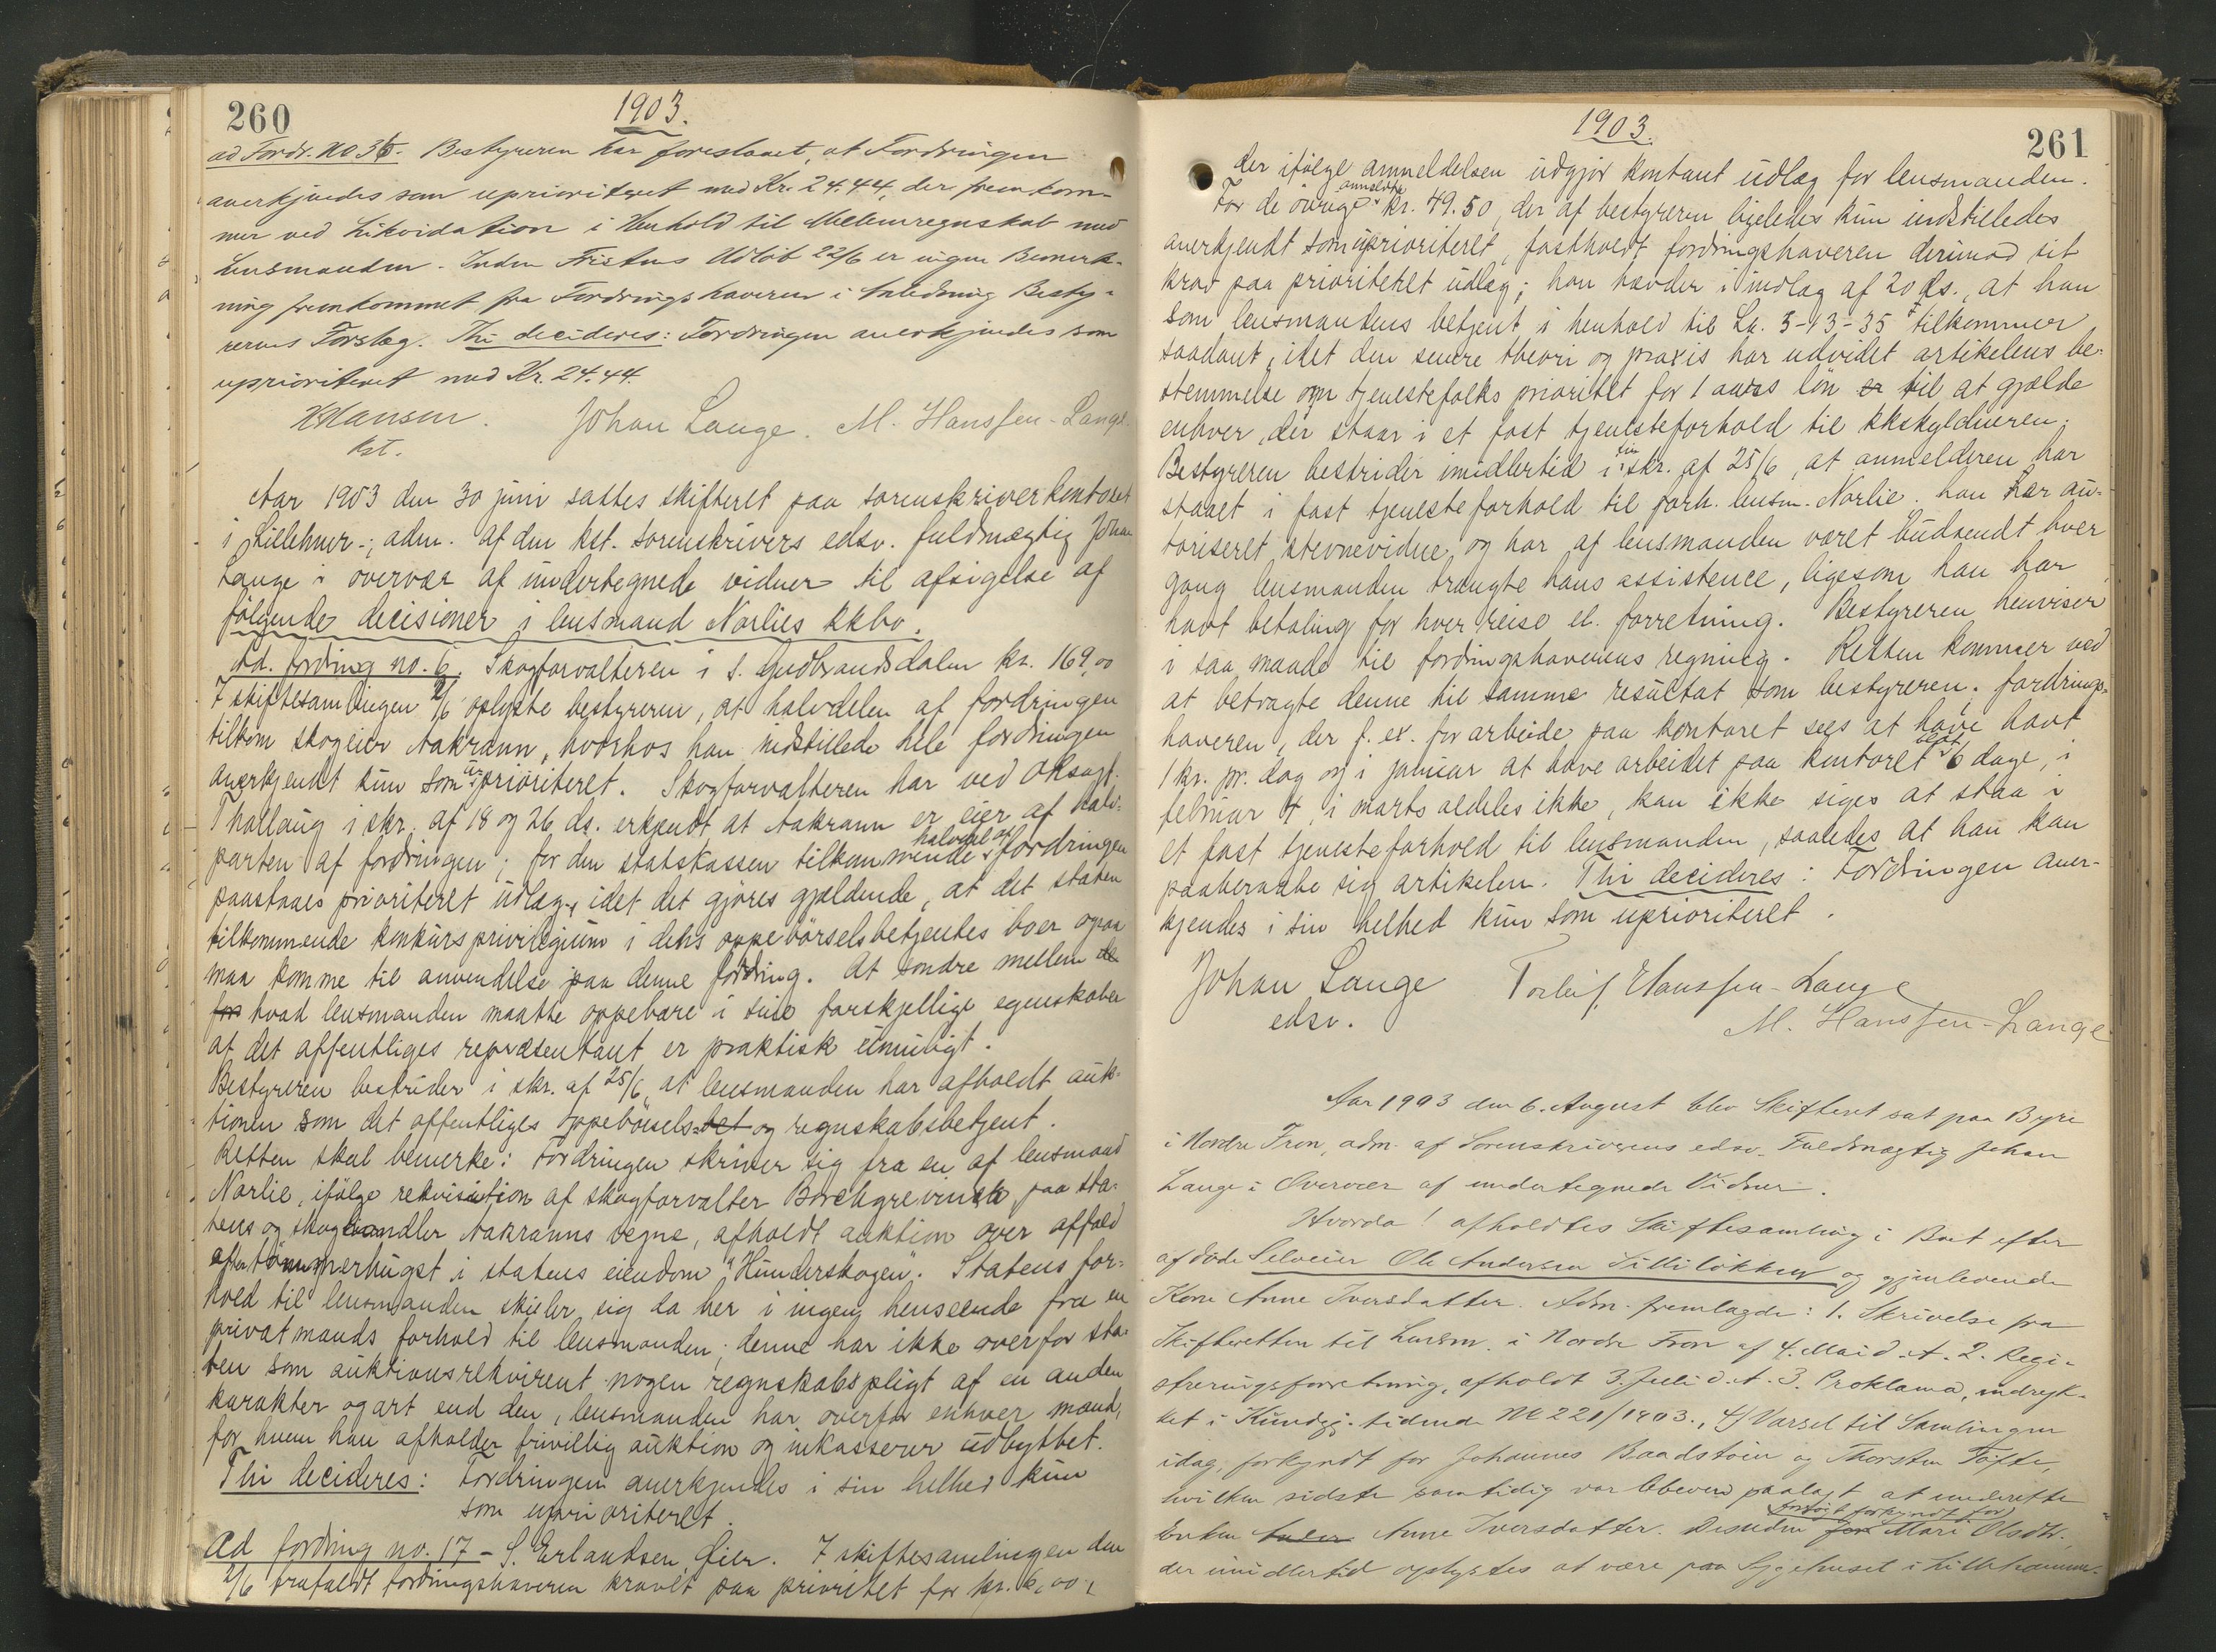 260
1903.
ad Fordr. No 36. Bestyreren har foreslaaet, at Fordringen
anerkjendes som uprioriteret med Kr. 24.44, der fremkom-
mer ved Likvidation i Henhold til Mellemregnskab med
Lensmanden. Inden Fristens Udløb 22/6 er ingen Bemærk-
ning fremkommet fra Fordringshaveren i Anledning Besty-
rerens Forslag. Thi decideres: Fordringen anerkjendes som
uprioriteret med Kr. 24.44.
Hansen. Johan Lange. M. Hanssen-Lange.
kst.
Aar 1903 den 30 juni sattes skifteret paa sorenskriverkontoret
i Lillehmr.; adm. af den kst. sorenskrivers edsv. fuldmægtig Johan
Lange i overvær af undertegnede vidner til afsigelse af
følgende decisioner i lensmand Norlies kkbo.
Ad. fordring no. 6. Skogforvalteren i S. Gudbrandsdalen kr. 169,00
I skiftesamlingen 2/6 oplyste bestyreren, at halvdelen af fordringen
tilkom skogeier Aakrann, hvorhos han indstillede hele fordringen
anerkjendt kun som uprioriteret. Skogforvalteren har ved Oksagf.
Thallaug i skr. af 18 og 26 ds. erkjendt at Aakrann er eier af halv-
parten af fordringen; for den statskassen tilkommende halvdel af fordringen
paastaaes prioriteret udlæg, idet det gjøres gjældende, at det staten
tilkommende konkursprivilegium i dens oppebørselsbetjentes boer ogsaa
maa komme til anvendelse paa denne fordring. At sondre mellem de
for hvad lensmanden maatte oppebære i sine forskjellige egenskaber
af det offentliges repræsentant er praktisk umuligt.
Bestyreren bestrider i skr. af 25/6, at lensmanden har afholdt auk-
tionen som det offentliges oppebørsels-bet og regnskabsbetjent.
Retten skal bemerke: Fordringen skriver sig fra en af lensmand
Norlie, ifølge rekvisition af skogforvalter Borchgrevinck paa sta-
tens og skoghandler Aakranns vegne, afholdt auktion over affald
efter tømmerhugst i statens eiendom "Hunderskogen". Statens for-
hold til lensmanden skiller sig da her i ingen henseende fra en
privat mands forhold til lensmanden; denne har ikke overfor sta-
ten som auktionsrekvirent nogen regnskabspligt af en anden
karakter og art end den, lensmanden har overfor enhver mand,
for hvem han afholder frivillig auktion og inkasserer udbyttet.
Thi decideres: Fordringen anerkjendes i sin helhed kun
som uprioriteret.
Ad fordring no. 17 - S. Erlandsen Øier. I skiftesamlingen den
2/6 frafaldt fordringshaveren kravet paa prioritet for kr. 6,00,
1903.
261
der ifølge anmeldelsen udgjør kontant udlæg for lensmanden.
For de øvrige anmeldte kr. 49.50, der af bestyreren ligeledes kun indstilledes
anerkjendt som uprioriteret, fastholdt fordringshaveren derimod sit
krav paa prioriteret udlæg; han hævder i indlæg af 20 ds., at han
som lensmandens betjent i henhold til L. 3-13-35 tilkommer
saadant, idet den senere theori og praxis har udvidet artikelens be-
stemmelse om tjenestefolks prioritet for 1 aars løn er til at gjælde
enhver, der staar i et fast tjenesteforhold til kkskyldneren.
Bestyreren bestrider imidlertid i sin skr. af 25/6, at anmelderen har
staaet i fast tjenesteforhold til forh. lensm. Norlie. han har au-
toriseret stevnevidne og har af lensmanden været budsendt hver
gang lensmanden trængte hans assistence, ligesom han har
havt betaling for hver reise el. forretning. Bestyreren henviser
i saa maade til fordringshaverens regning. Retten kommer ved
at betragte denne til samme resultat som bestyreren; fordrings-
haveren, der f. ex. for arbeide paa kontoret sees at have havt
1 kr. pr. dag og i januar at have arbeidet paa kontoret 6 dage, i
februar 4, i marts aldeles ikke, kan ikke siges at staa i
et fast tjenesteforhold til lensmanden, saaledes at han kan
paaberaabe sig artikelen. Thi decideres: Fordringen aner-
kjendes i sin helhed kun som uprioriteret.
Johan Lange Torleif Hanssen-Lange
edsv. M. Hanssen-Lange
Aar 1903 den 6. August blev Skifteret sat paa Byre
i Nordre Fron, adm. af Sorenskriverens edsv. Fuldmægtig Johan
Lange i Overvær af undertegnede Vidner.
Hvorda! afholdtes Skiftesamling i Boet efter
afdøde Selveier Ole Andersen Lillløkken og gjenlevende
Kone Anne Iversdatter. Adm. fremlagde: 1. Skrivelse fra
Skifteretten til Lensm. i Nordre Fron af 4. Mai d. A. 2. Regi-
streringsforretning, afholdt 3. Juli d. A. 3. Proklama, indryk-
ket i Kundgj. tidende No 221/1903., 4/ Varsel til Samlingen
idag, forkyndt for Johannes Baadstøen og Thorsten Tofte,
hvilken sidste samtidig var bleven paalagt at underrette
Enken Anne Iversdatter. Desuden forsøgt forkyndt for Mari Olsdtr.,
der imidlertid oplystes at være paa Sygehuset i Lillehammer.